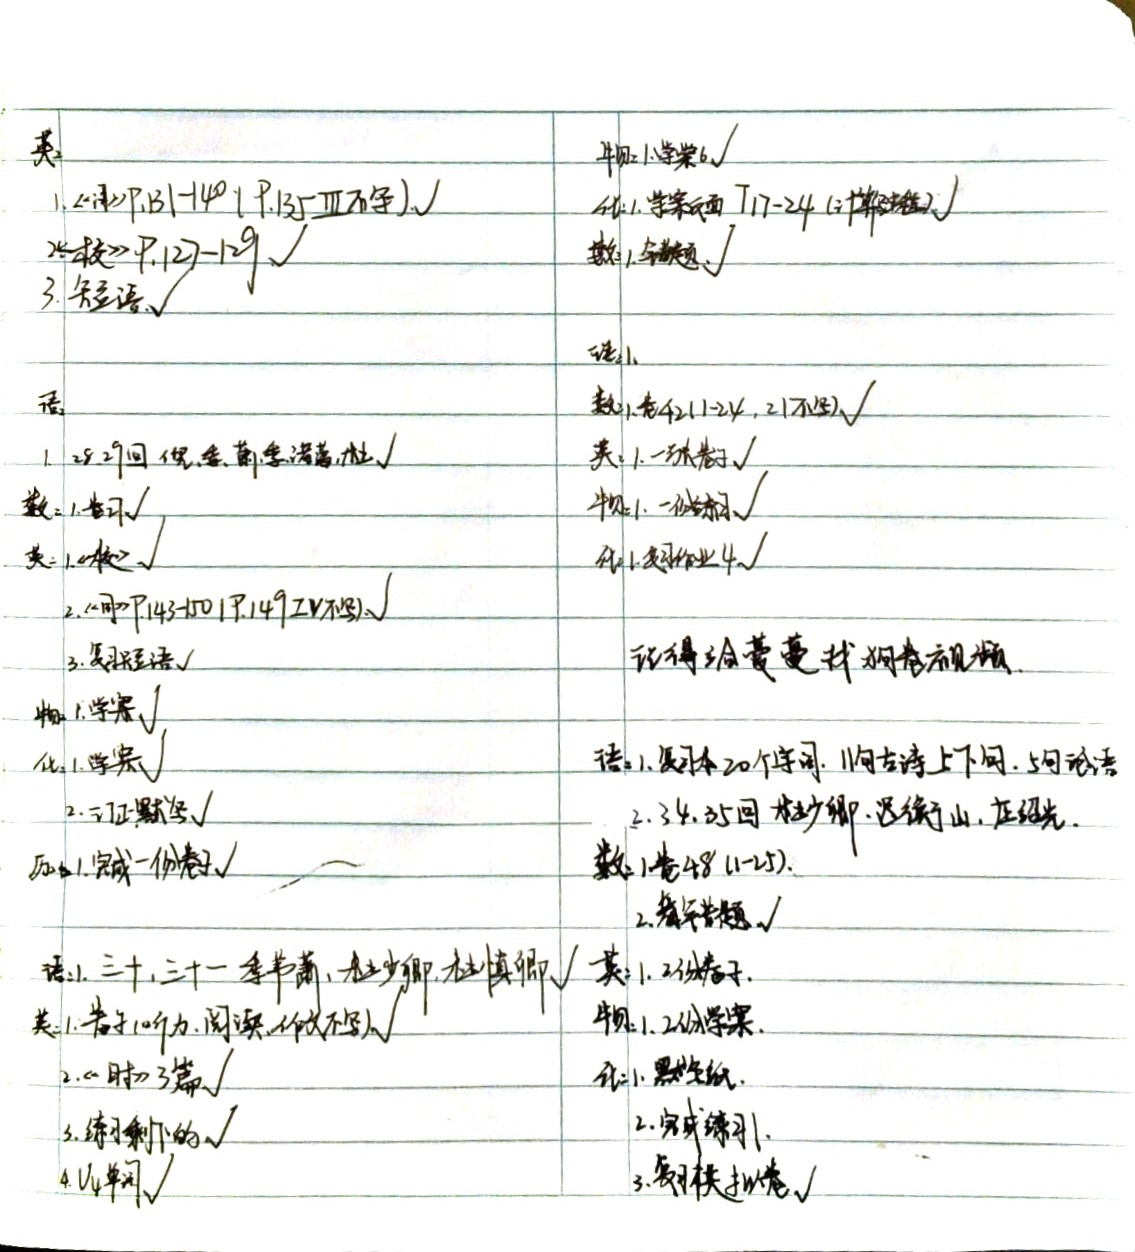 英:
1.<<词>>P.131-140(P.135 III不写).✓
2.<<校>>P.127-129 ✓
3.短语.✓
语:
1. 28.29回 倪.季.萧.季.诸葛.杜.✓
数:1.卷习✓
英:1.<<校>> ✓
2.<<时>>P.143-150(P.149 IV不写).✓
3.复习短语✓
物:1.学案✓
化:1.学案✓
2.订正默写✓
历:1.完成一份卷子✓
语:1.三十.三十一 季苇萧.杜少卿.杜慎卿✓
英:1.卷子10(听力.阅读.作文不写)✓
2.<<时>>3篇✓
3.练习剩下的✓
4.U4单词✓
物:1.学案6.✓
化:1.学案反面 T17-24(计算过程)✓
数:1.错题.✓
语:1.
数:1.卷42(1-24,21不写)✓
英:1.一张卷子✓
物:1.一份练习✓
化:1.复习作业4✓
记得给蔓蔓找狗卷视频.
语:1.复习本20个字词.11句古诗上下句.5句论语
2.34.35回 杜少卿.迟衡山.庄绍光.
数:1.卷48(1-25).
2.错题✓
英:1.2份卷子.
物:1.2份学案.
化:1.默写纸.
2.完成练习1.
3.复习模拟卷✓